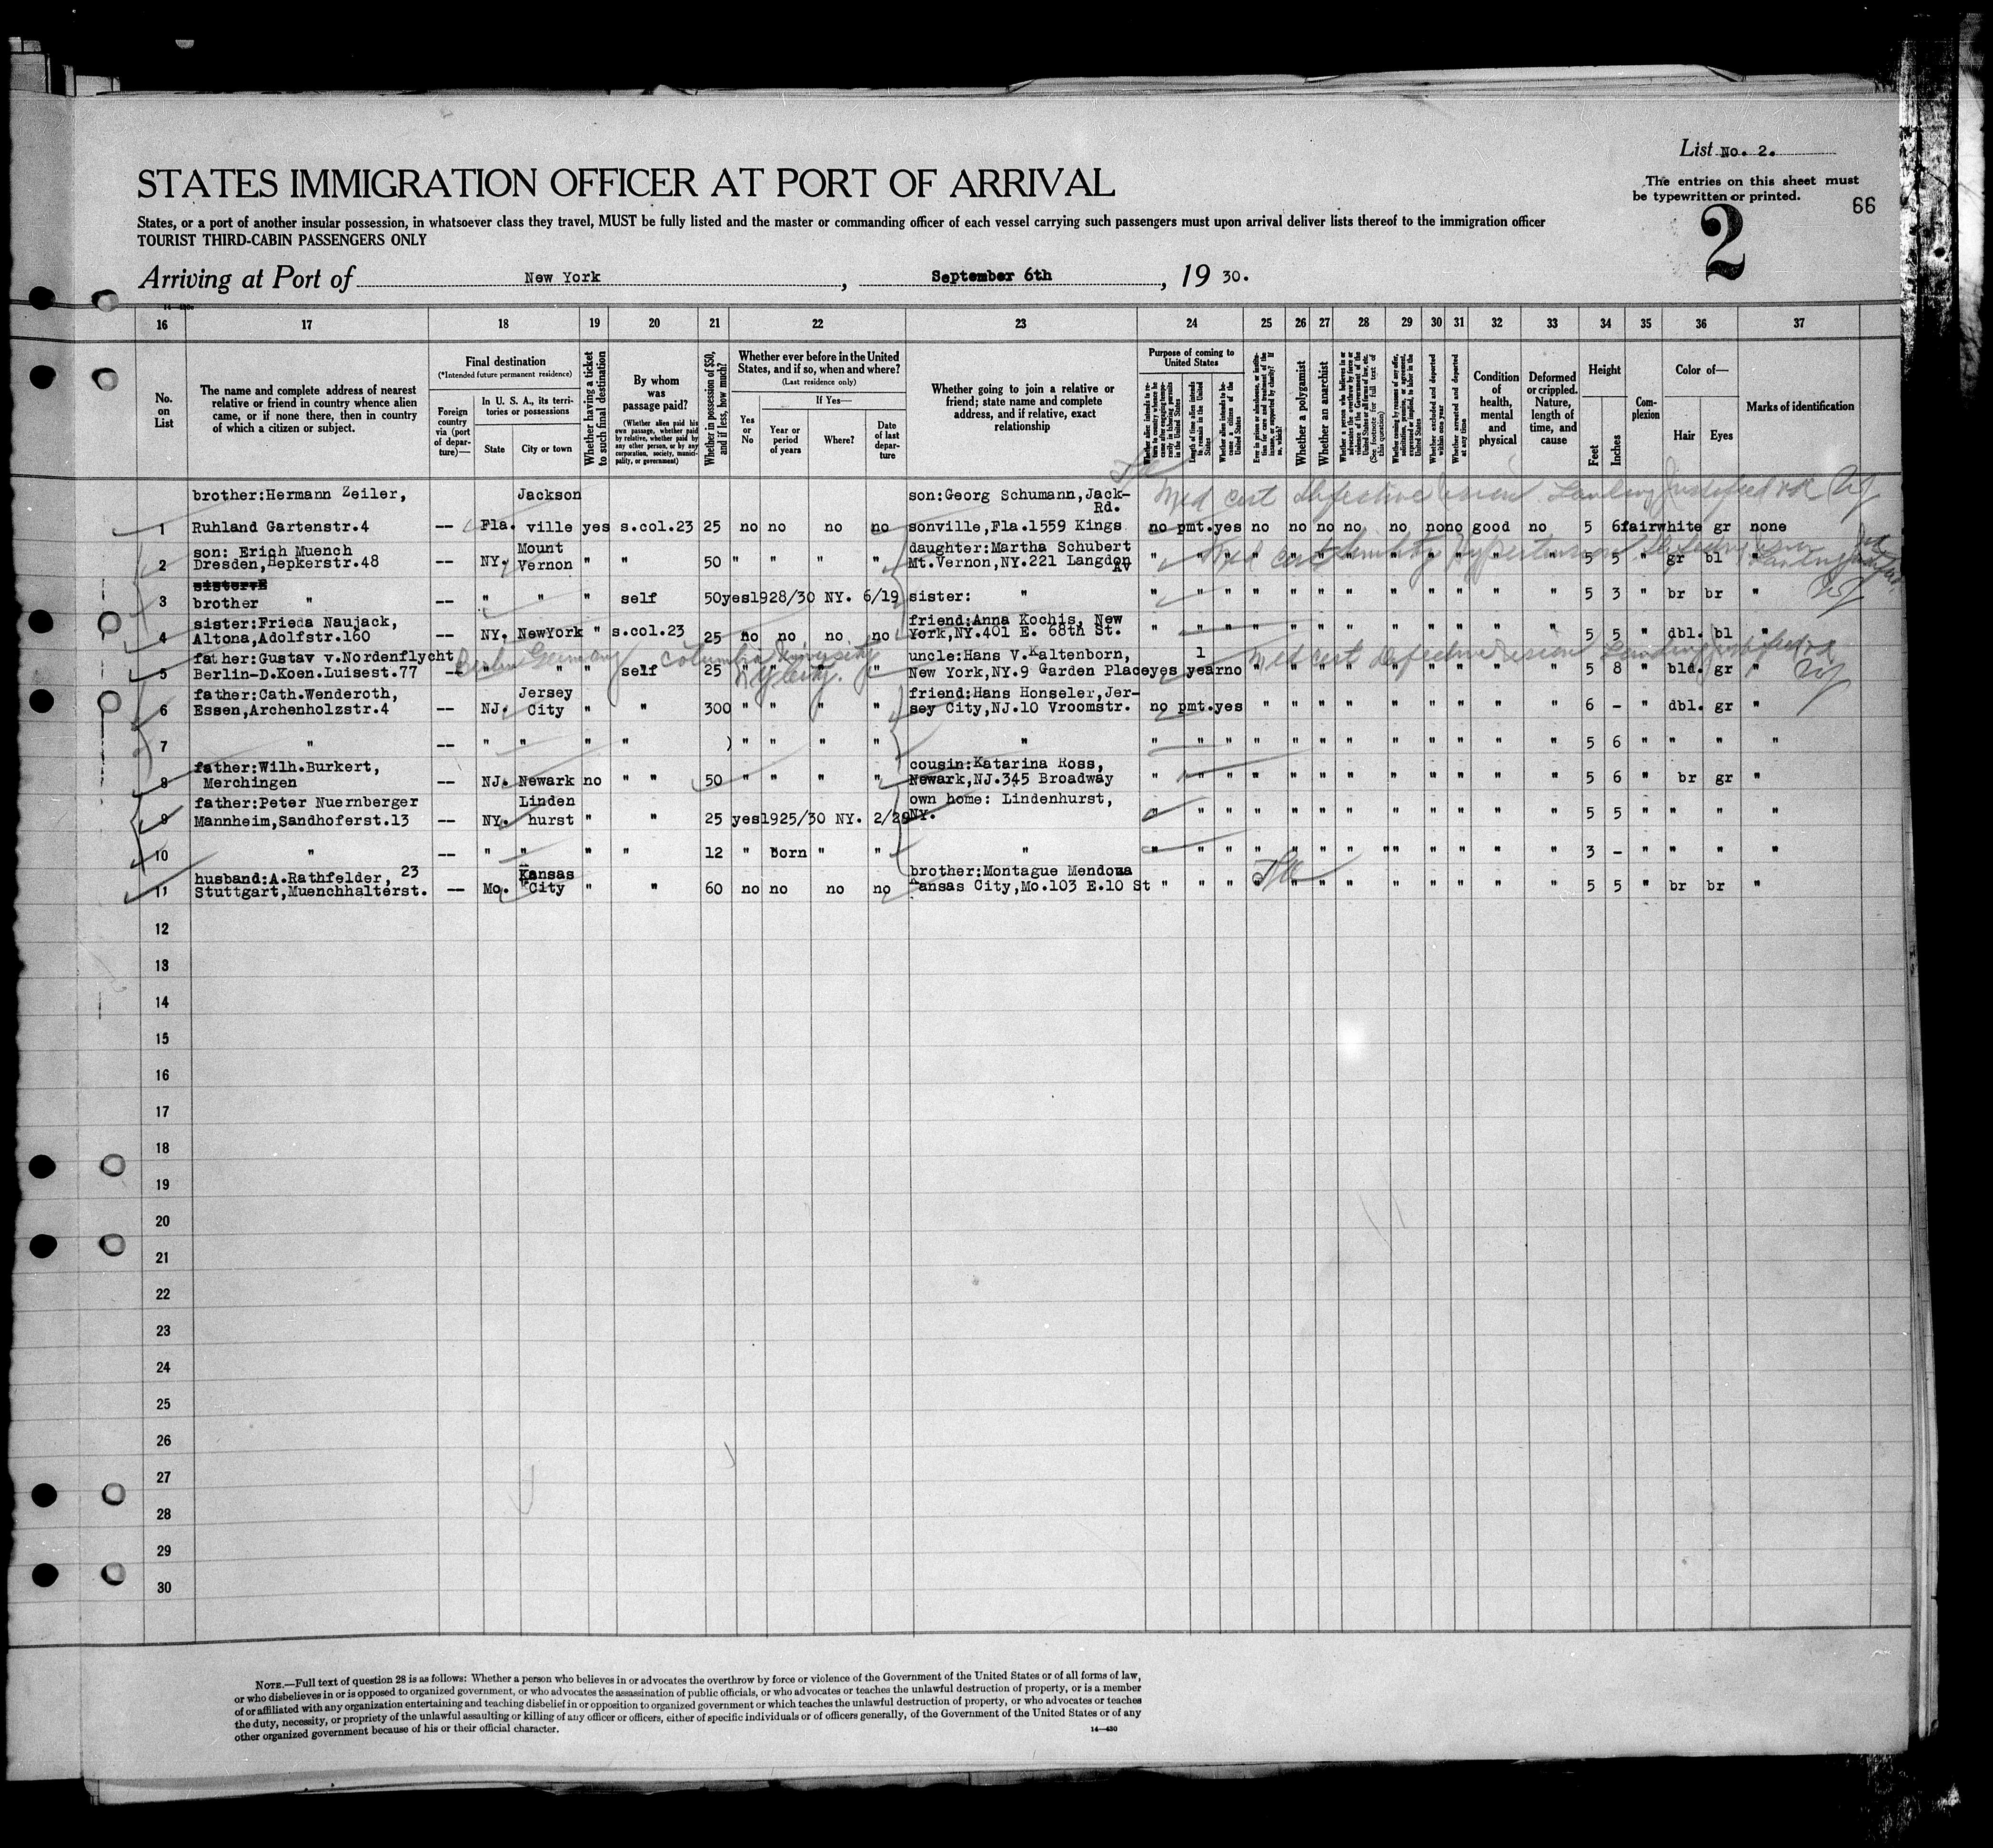 List No. 2.
The entries on this sheet must
be typewritten or printed.
66
2
STATES IMMIGRATION OFFICER AT PORT OF ARRIVAL
States, or a port of another insular possession, in whatsoever class they travel, MUST be fully listed and the master or commanding officer of each vessel carrying such passengers must upon arrival deliver lists thereof to the immigration officer
TOURIST THIRD-CABIN PASSENGERS ONLY
Arriving at Port of New York, September 6th, 19 30.
16 17 18 19 20 21 22 23 24 25 26 27 28 29 30 31 32 33 34 35 36 37
No. on List
The name and complete address of nearest
relative or friend in country whence alien
came, or if none there, then in country
of which a citizen or subject.
Final destination
(*Intended future permanent residence)
Foreign country via (port of departure)—
In U. S. A., its territories or possessions
State
City or town
Whether having a ticket to such final destination
By whom was passage paid?
(Whether alien paid his own passage, whether paid by relative, whether paid by any other person, or by any corporation, society, municipality, or government)
Whether in possession of $50, and if less, how much?
Whether ever before in the United States, and if so, when and where?
(Last residence only)
Yes or No
If Yes—
Year or period of years
Where?
Date of last departure
Whether going to join a relative or
friend; state name and complete
address, and if relative, exact
relationship
Purpose of coming to United States
Whether alien intends to return to country whence he came after engaging temporarily in laboring pursuits in the United States
Length of time alien intends to remain in the United States
Whether alien intends to become a citizen of the United States
Ever in prison or almshouse, or institution for care and treatment of the insane, or supported by charity? If so, which?
Whether a polygamist
Whether an anarchist
Whether a person who believes in or advocates the overthrow by force or violence of the Government of the United States or all forms of law, etc. (See footnote for full text of this question)
Whether coming by reason of any offer, solicitation, promise, or agreement, expressed or implied, to labor in the United States
Whether excluded and deported within one year
Whether arrested and deported at any time
Condition of health, mental and physical
Deformed or crippled. Nature, length of time, and cause
Height
Feet
Inches
Complexion
Color of—
Hair
Eyes
Marks of identification
brother:Hermann Zeiler, Jackson son:Georg Schumann,Jack- Med cert defective vision Landing justified
Rd.
1 Ruhland Gartenstr.4 -- Fla. ville yes s.col.23 25 no no no no sonville,Fla.1559 Kings no pmt.yes no no no no no no no good no 5 6 fair white gr none
son: Erich Muench Mount daughter:Martha Schubert
2 Dresden,Hepkerstr.48 -- NY. Vernon " " 50 " " " " Mt.Vernon,NY.221 Langdon " " " " " " " " " " " " 5 5 " gr bl "
Av
Med cert hypertension
3 brother " -- " " " self 50 yes 1928/30 NY. 6/19 sister: " " " " " " " " " " " " " 5 3 " br br "
sister:Frieda Naujack, friend:Anna Kochis, New
4 Altona,Adolfstr.160 -- NY. NewYork " s.col.23 25 no no no no York,NY.401 E. 68th St. " " " " " " " " " " " " 5 5 " dbl. bl "
father:Gustav v.Nordenflycht Berlin Germany Columbia University uncle:Hans V.Kaltenborn, 1 Med cert defective vision Landing justified
5 Berlin-D.Koen.Luisest.77 -- " " " self 25 " " " " New York,NY.9 Garden Place yes year no " " " " " " " " " 5 8 " bld. gr "
NY City.
father:Cath.Wenderoth, Jersey friend:Hans Honseler,Jer-
6 Essen,Archenholzstr.4 -- NJ. City " " 300 " " " " sey City,NJ.10 Vroomstr. no pmt.yes " " " " " " " " " 6 - " dbl. gr "
7 " -- " " " " ) " " " " " " " " " " " " " " " " " " 5 6 " " " "
father:Wilh.Burkert, cousin:Katarina Ross,
8 Merchingen -- NJ. Newark no " " 50 " " " " Newark,NJ.345 Broadway " " " " " " " " " " " " 5 6 " br gr "
father:Peter Nuernberger Linden own home: Lindenhurst,
9 Mannheim,Sandhoferst.13 -- NY. hurst " " 25 yes 1925/30 NY. 2/29 NY. " " " " " " " " " " " " 5 5 " " " "
10 " -- " " " " 12 " born " " " " " " " " " " " " " " " " 3 - " " " "
husband:A.Rathfelder, 23 Kansas brother:Montague Mendowa
11 Stuttgart,Muenchhalterst. -- Mo. City " " 60 no no no no Kansas City,Mo.103 E.10 St " " " " " " " " " " " " 5 5 " br br "
12
13
14
15
16
17
18
19
20
21
22
23
24
25
26
27
28
29
30
NOTE.—Full text of question 28 is as follows: Whether a person who believes in or advocates the overthrow by force or violence of the Government of the United States or of all forms of law,
or who disbelieves in or is opposed to organized government, or who advocates the assassination of public officials, or who advocates or teaches the unlawful destruction of property, or is a member
of or affiliated with any organization entertaining and teaching disbelief in or opposition to organized government or which teaches the unlawful destruction of property, or who advocates or teaches
the duty, necessity, or propriety of the unlawful assaulting or killing of any officer or officers, either of specific individuals or of officers generally, of the Government of the United States or of any
other organized government because of his or their official character.
14—430